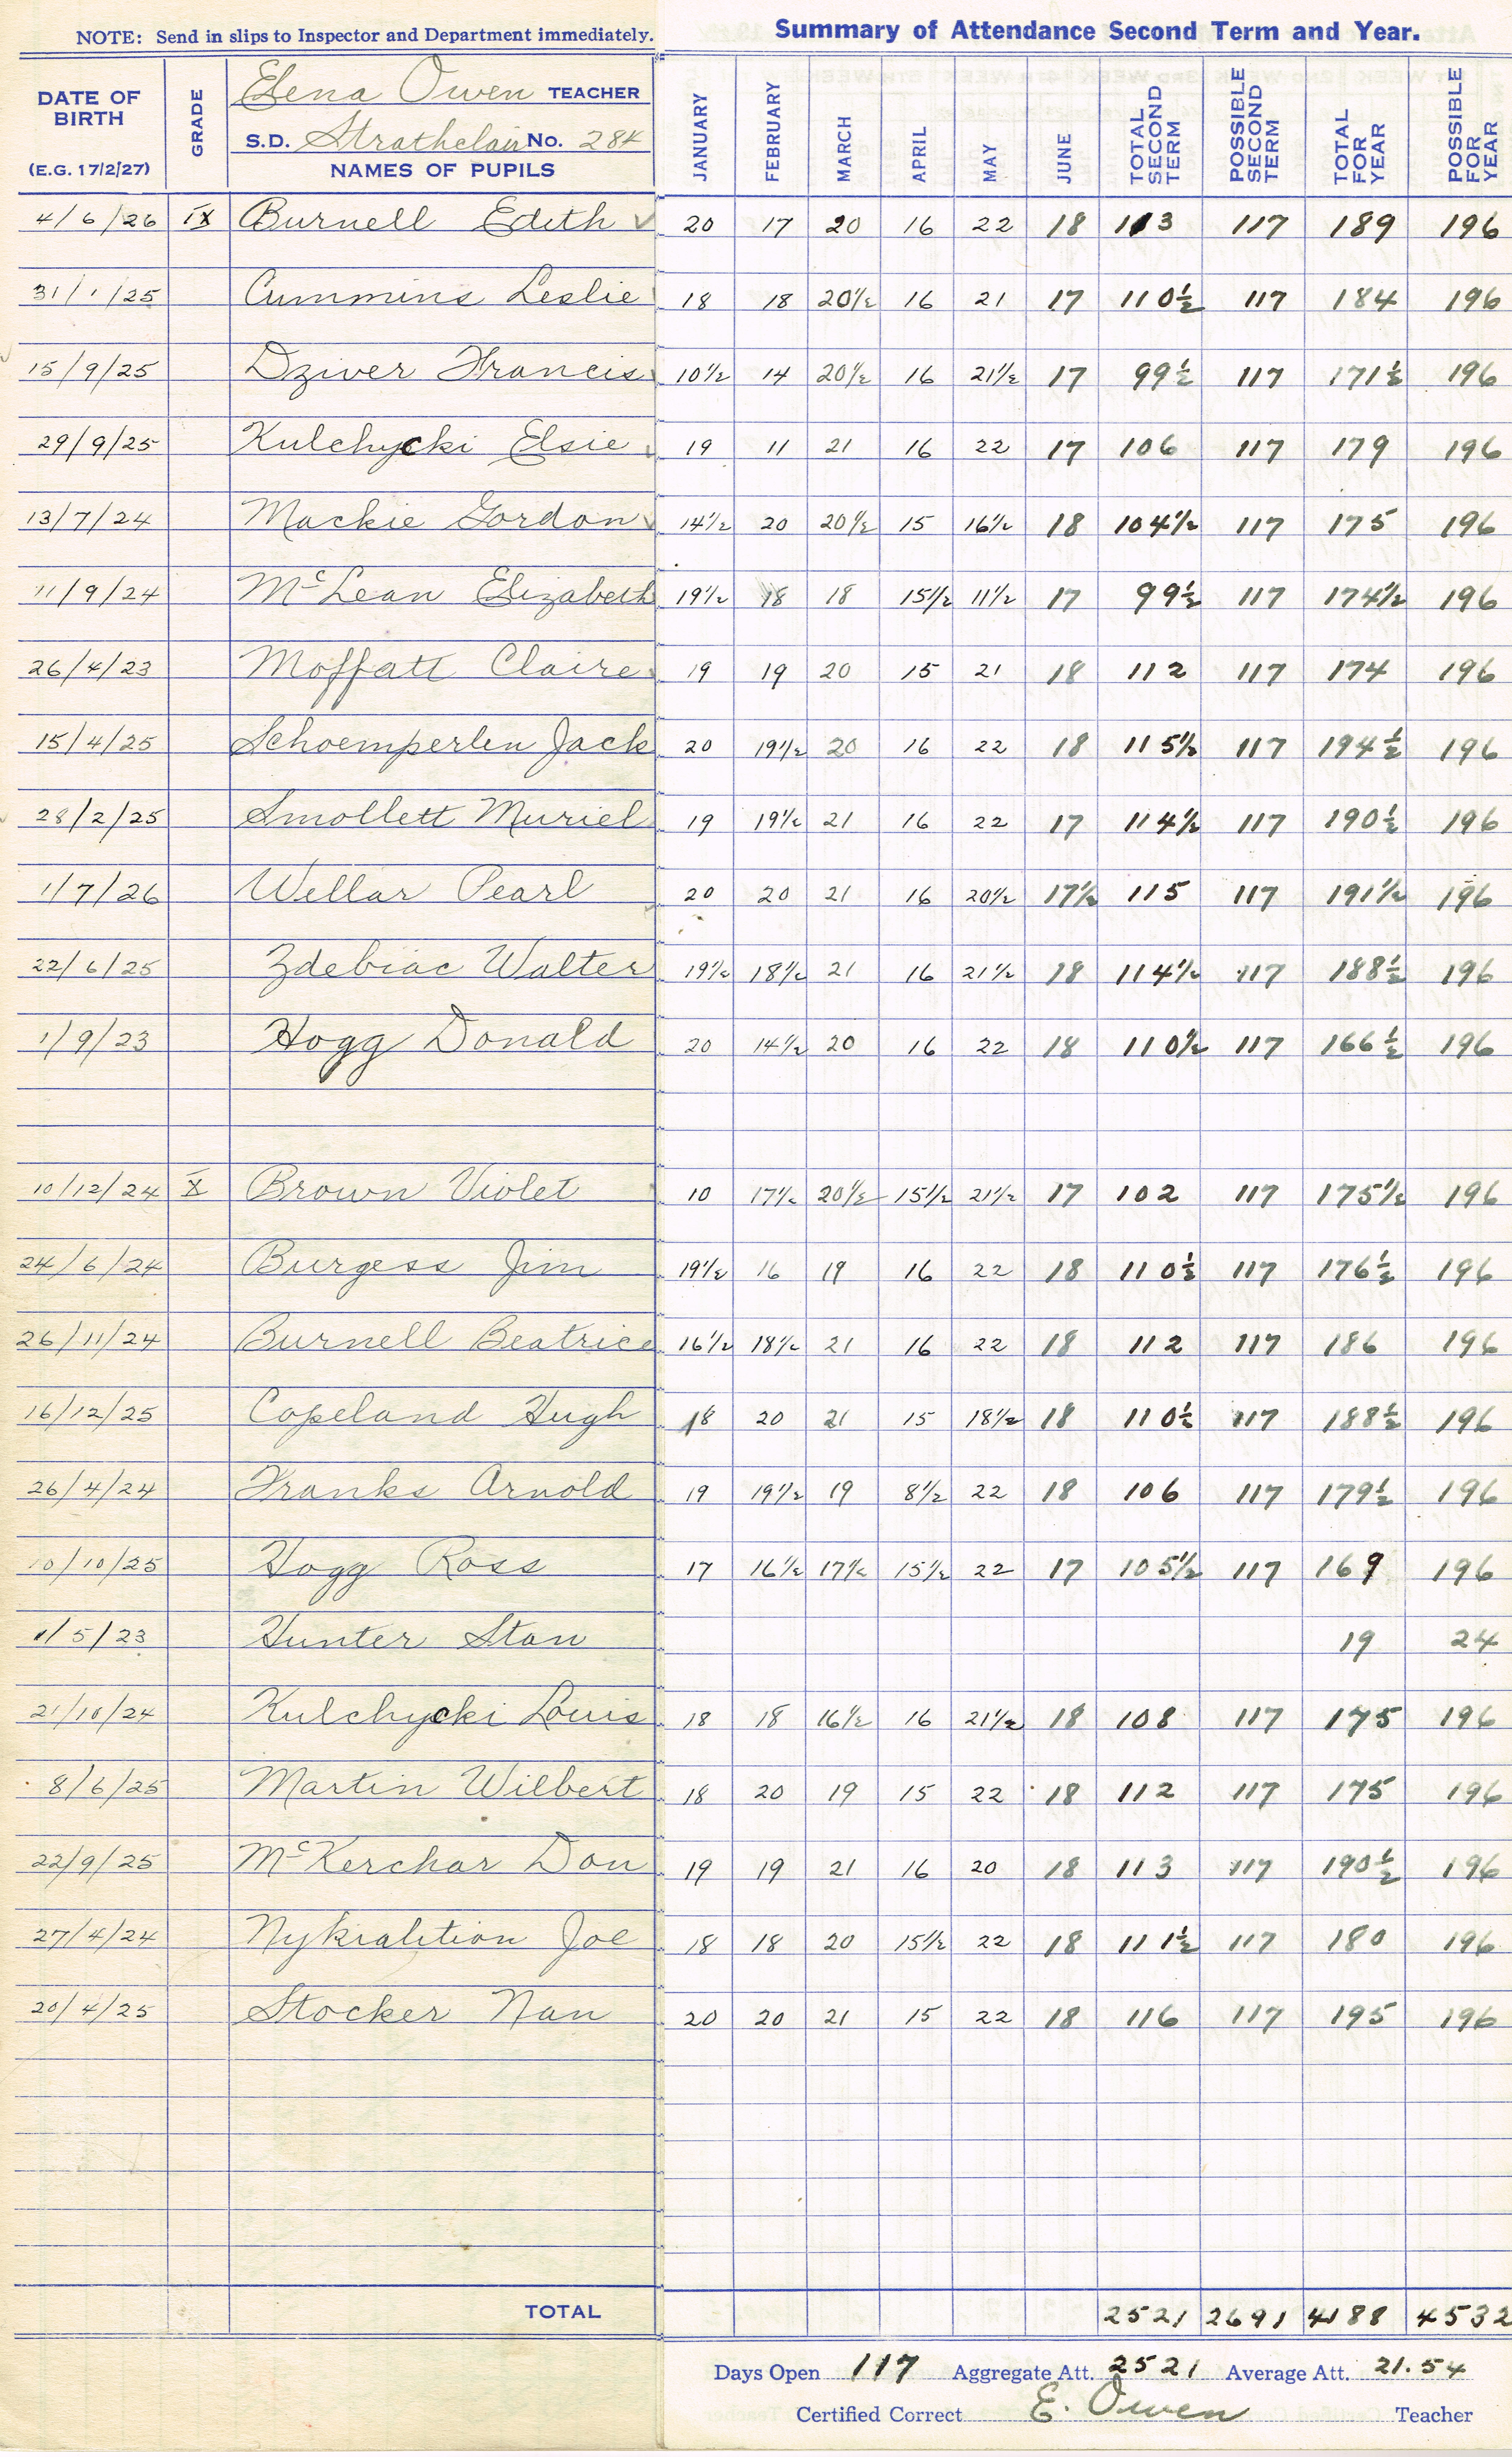 NOTE: Send in slips to Inspector and Department immediately.
Summary of Attendance Second Term and Year.
DATE OF BIRTH (E.G. 17/2/27) GRADE Elena Owen TEACHER
S.D. Strathclair No. 284
NAMES OF PUPILS JANUARY FEBRUARY MARCH APRIL MAY JUNE TOTAL SECOND TERM POSSIBLE SECOND TERM TOTAL FOR YEAR POSSIBLE FOR YEAR
4/6/26 IX Burnell Edith 20 17 20 16 22 18 113 117 189 196
31/1/25 Cummins Leslie 18 18 20½ 16 21 17 110½ 117 184 196
15/9/25 Dziver Francis 10½ 14 20½ 16 21½ 17 99½ 117 171½ 196
29/9/25 Kulchycki Elsie 19 11 21 16 22 17 106 117 179 196
13/7/24 Mackie Gordon 14½ 20 20½ 15 16½ 18 104½ 117 175 196
11/9/24 McLean Elizabeth 19½ 18 18 15½ 11½ 17 99½ 117 174½ 196
26/4/23 Moffatt Claire 19 19 20 15 21 18 112 117 174 196
15/4/25 Schoemperlen Jack 20 19½ 20 16 22 18 115½ 117 194½ 196
28/2/25 Smollett Muriel 19 19½ 21 16 22 17 114½ 117 190½ 196
1/7/26 Wellar Pearl 20 20 21 16 20½ 17½ 115 117 191½ 196
22/6/25 Zdebiac Walter 19½ 18½ 21 16 21½ 18 114½ 117 188½ 196
1/9/23 Hogg Donald 20 14½ 20 16 22 18 110½ 117 166½ 196
10/12/24 X Brown Violet 10 17½ 20½ 15½ 21½ 17 102 117 175½ 196
24/6/24 Burgess Jim 19½ 16 19 16 22 18 110½ 117 176½ 196
26/11/24 Burnell Beatrice 16½ 18½ 21 16 22 18 112 117 186 196
16/12/25 Copeland Hugh 18 20 21 15 18½ 18 110½ 117 188½ 196
26/4/24 Franks Arnold 19 19½ 19 8½ 22 18 106 117 179½ 196
10/10/25 Hogg Ross 17 16½ 17½ 15½ 22 17 105½ 117 169 196
1/5/23 Hunter Stan 19 24
21/10/24 Kulchycki Louis 18 18 16½ 16 21½ 18 108 117 175 196
8/6/25 Martin Wilbert 18 20 19 15 22 18 112 117 175 196
22/9/25 McKerchar Don 19 19 21 16 20 18 113 117 190½ 196
27/4/24 Joe 18 18 20 15½ 22 18 111½ 117 180 196
20/4/25 Stocker Nan 20 20 21 15 22 18 116 117 195 196
TOTAL 2521 2691 4188 4532
Days Open 117 Aggregate Att. 2521 Average Att. 21.54
Certified Correct E. Owen Teacher